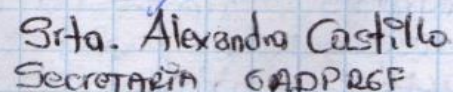 Srta. Alexandra Castillo
SecreTARIA GADPRGF